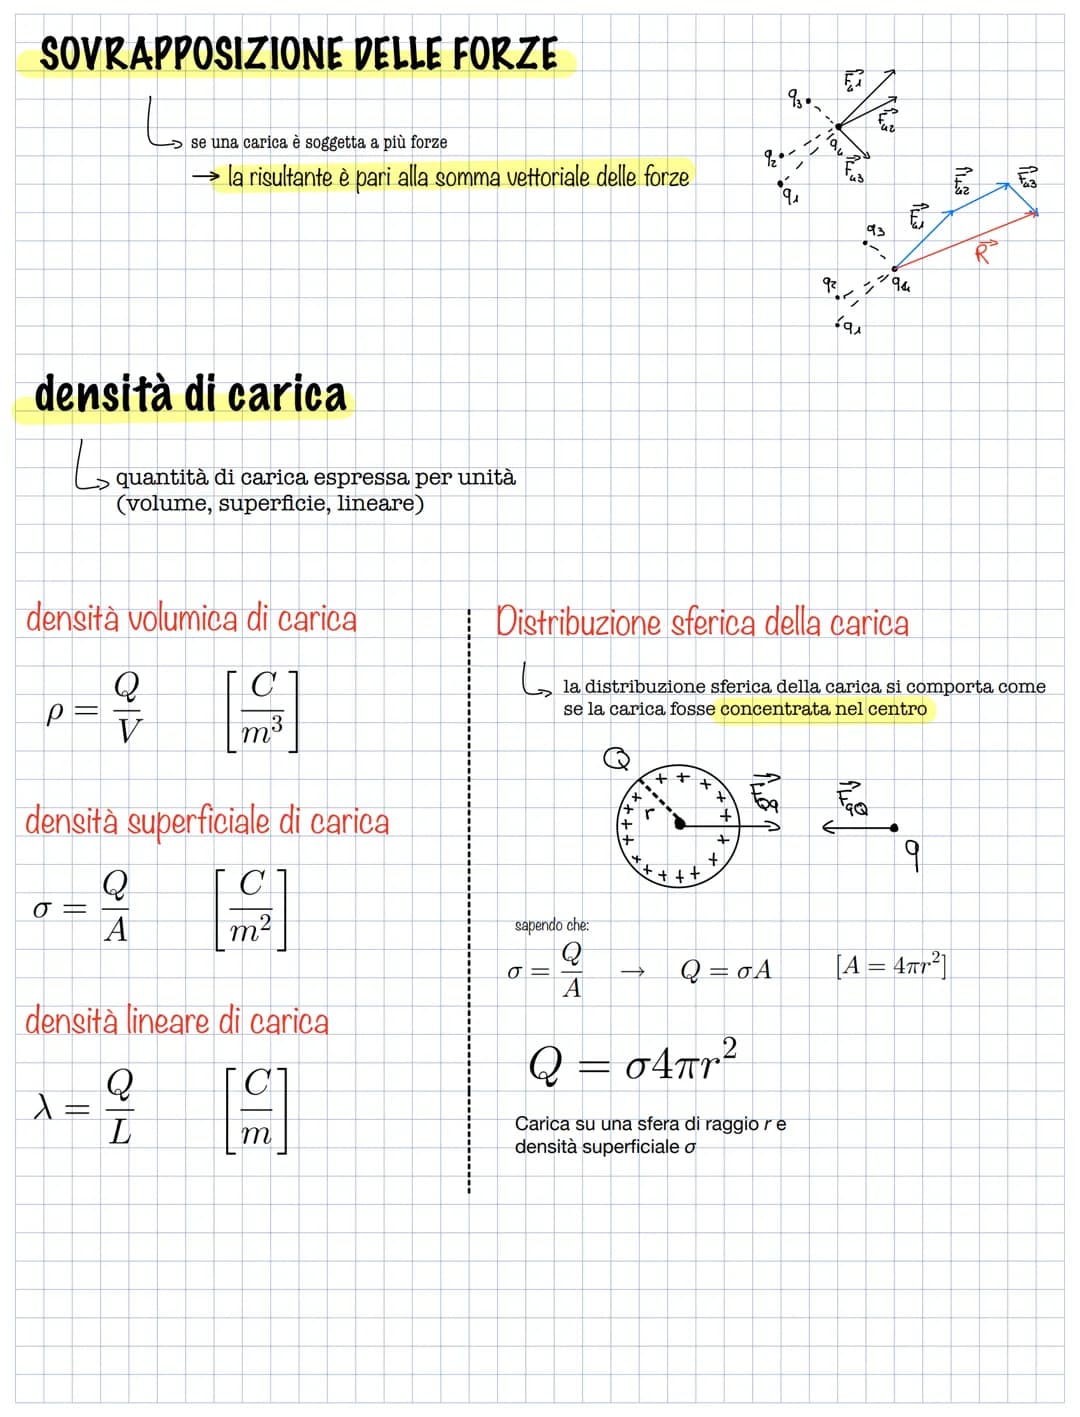 SOVRAPPOSIZIONE DELLE FORZE
se una carica è soggetta a più forze
→ la risultante è pari alla somma vettoriale delle forze
q₃ F₄₁
F₄₂
q₂ q₄ F₄₃
q₁
F₄₁ F₄₂ F₄₃
q₃
R
q₂ q₄
q₁
densità di carica
quantità di carica espressa per unità
(volume, superficie, lineare)
densità volumica di carica
ρ = Q/V [C/m³]
densità superficiale di carica
σ = Q/A [C/m²]
densità lineare di carica
λ = Q/L [C/m]
Distribuzione sferica della carica
la distribuzione sferica della carica si comporta come
se la carica fosse concentrata nel centro
Q r F_Qq F_qQ
q
sapendo che:
σ = Q/A → Q = σA [A = 4πr²]
Q = σ4πr²
Carica su una sfera di raggio r e
densità superficiale σ